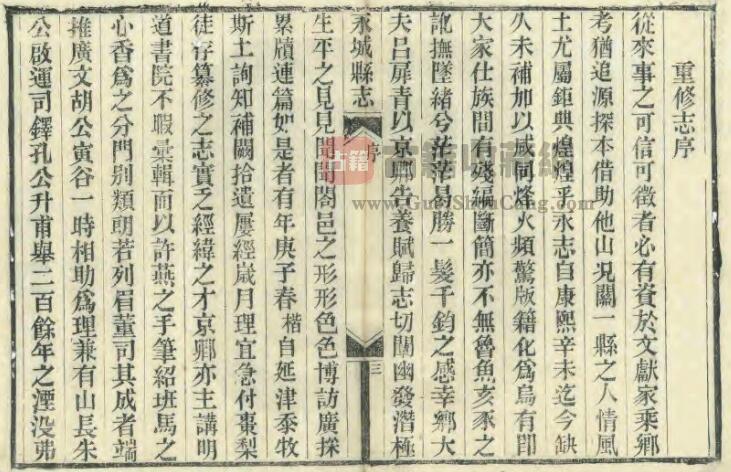 重修志序
從來事之可信可徵者必有資於文獻家乘鄉
考猶追源探本借助他山况關一縣之人情風
土尤屬鉅典煌煌乎永志自康熙辛未迄今缺
久未補加以咸同烽火頻驚版籍化爲烏有卽
大家仕族間有殘編斷簡亦不無魯魚亥豕之
訛撫墜緒兮茫茫曷勝一髮千鈞之感幸鄉大
夫呂犀青以京卿告養賦歸志切闡幽發潛極
永城縣志
序
三
生平之見見聞聞閤邑之形形色色博訪廣採
累牘連篇如是者有年庚子春楷自延津忝牧
斯土詢知補闕拾遺屢經歲月理宜急付棗梨
徒存纂修之志實乏經緯之才京卿亦主講明
道書院不暇彙輯而以許燕之手筆紹班馬之
心香爲之分門别類朗若列眉董司其成者端
推廣文胡公寅谷一時相助爲理兼有山長朱
公啟運司鐸孔公升甫舉二百餘年之湮没弗
古籍
www.GuJiShouCang.com